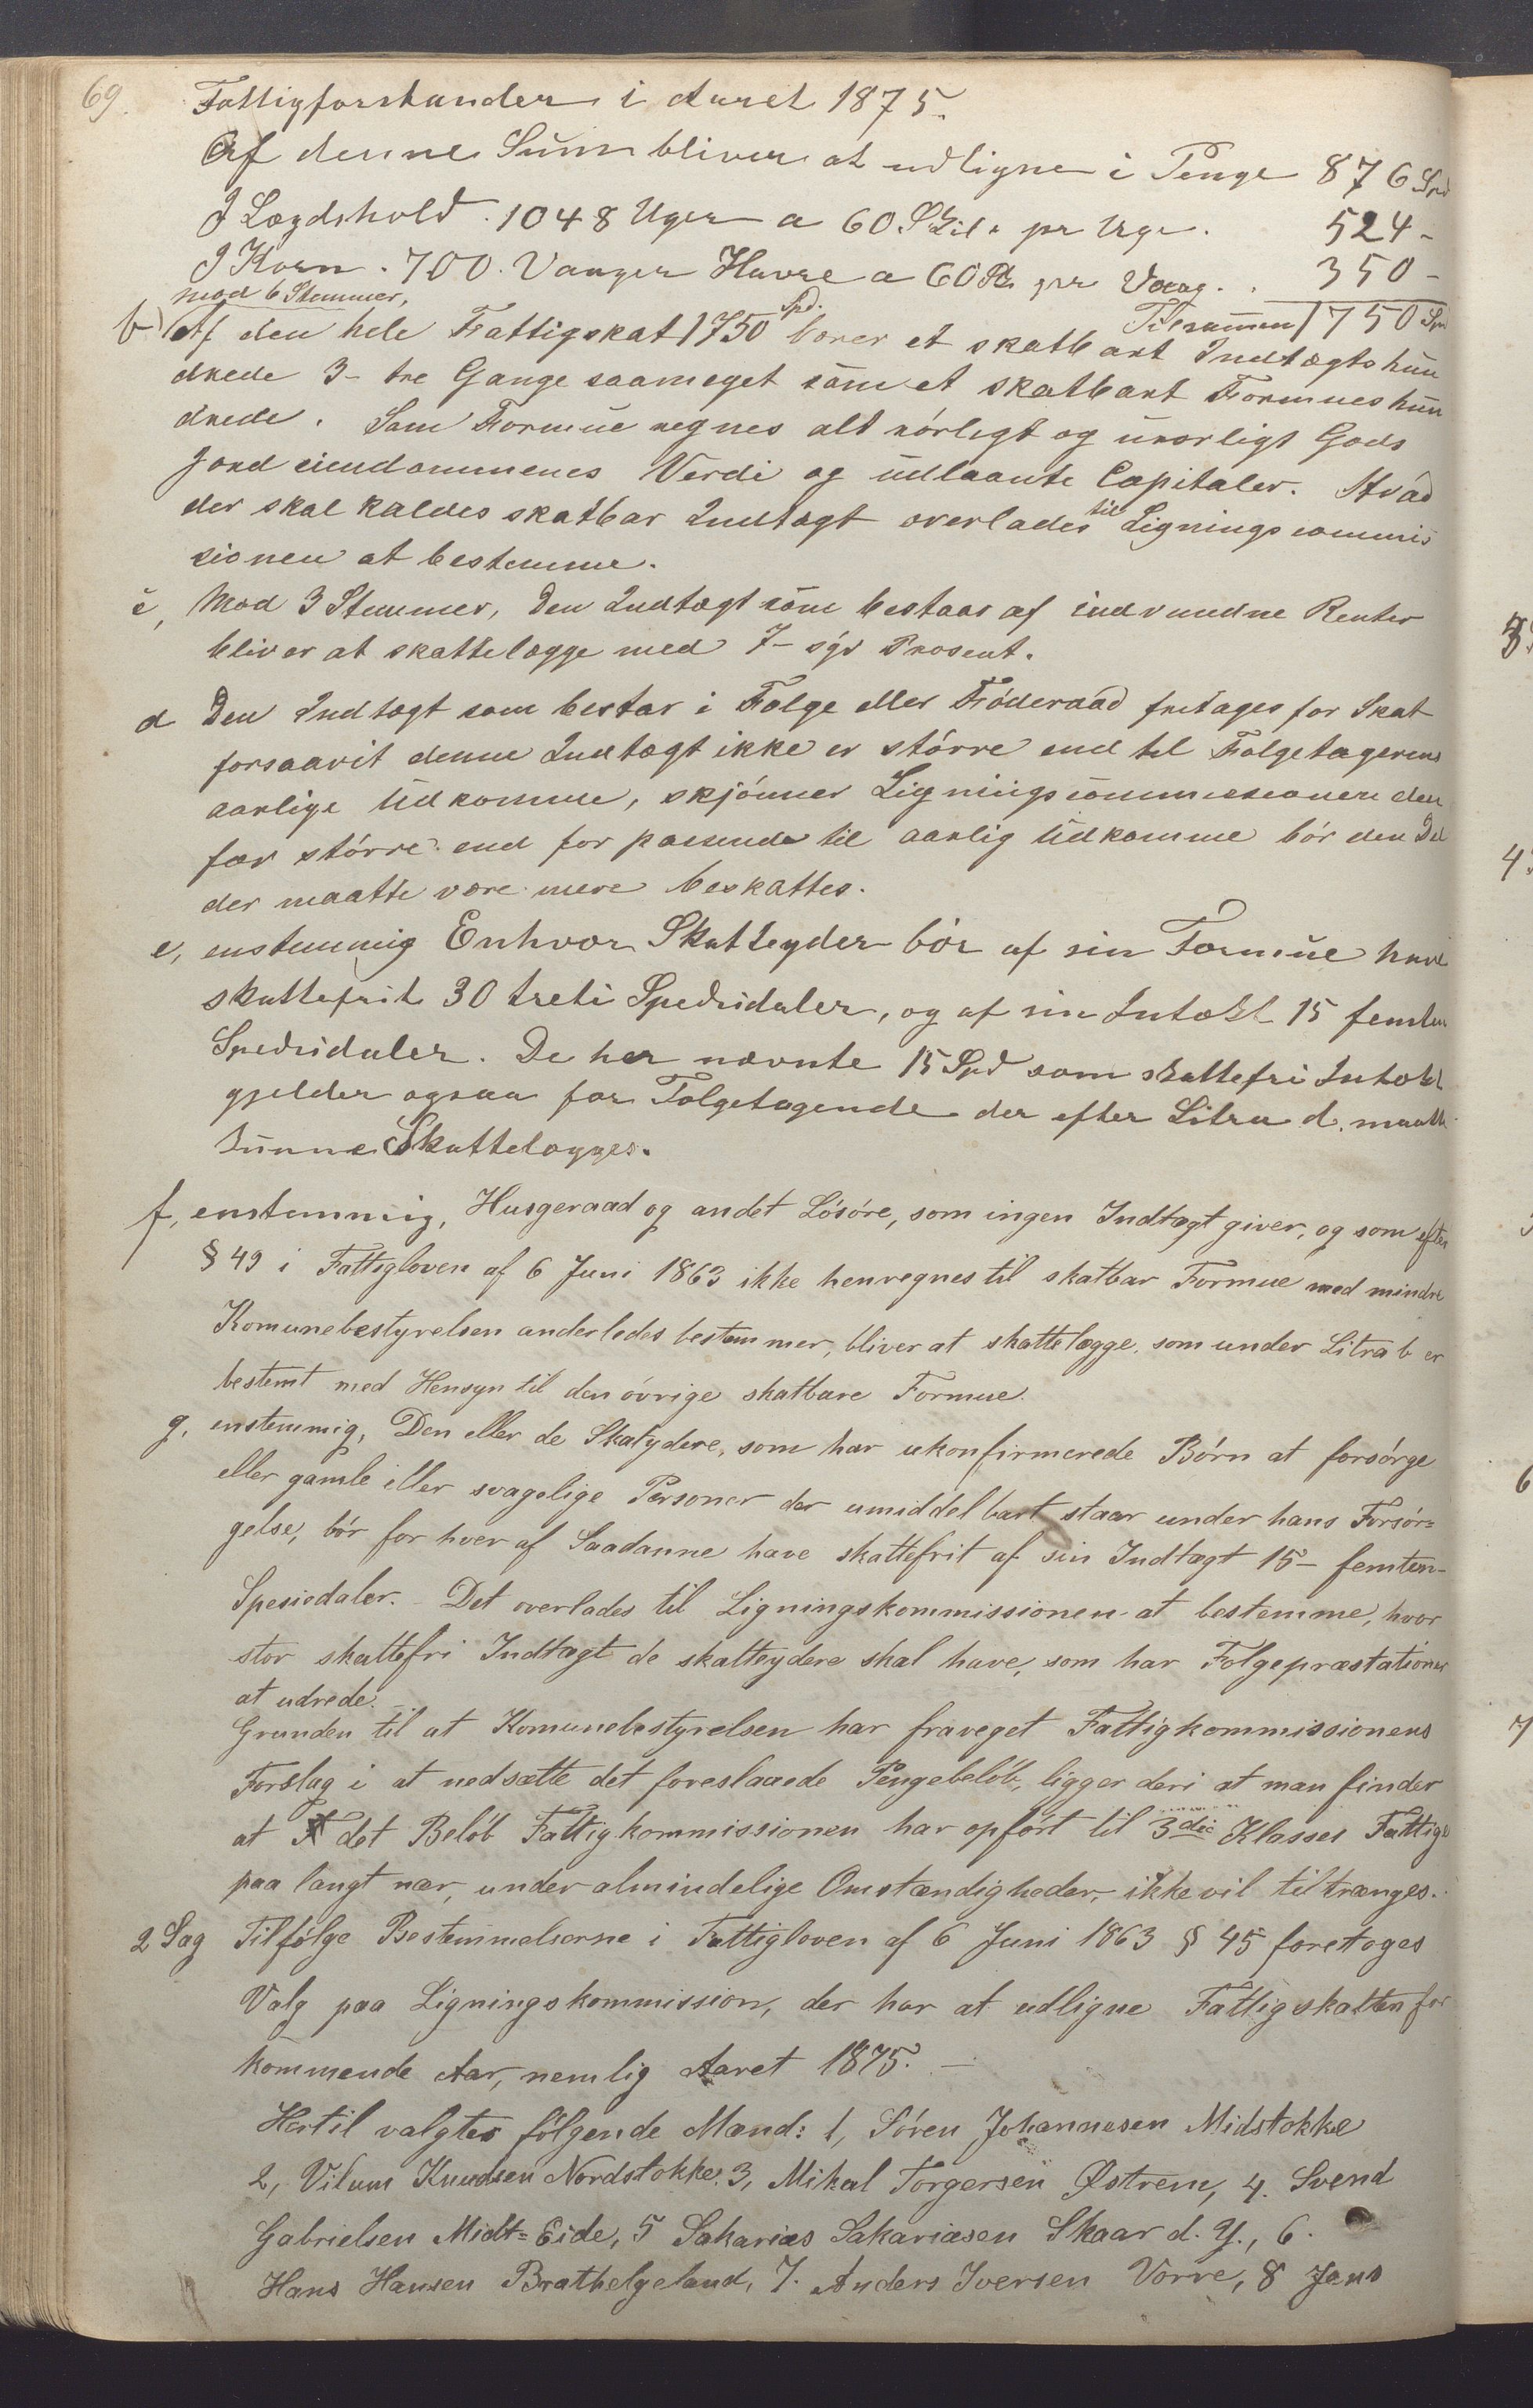 69.
Fattigforstander i Aaret 1875.
Af denne Sum bliver at udligne i Penge 876 Spd
I Lægdshold. 1048 Uger a 60 Skil. pr Uge. 524 -
I Korn. 700. Vaager Havre a 60 Sk pr Vaag. . 350 -
Tilsammen 1750 Spd
mod 6 Stemmer,
b) Af den hele Fattigskat 1750 Spd. bærer et skatbart Indtægtshun
drede 3- tre Gange saameget som et skatbart Formueshun
drede. Som Formue regnes alt rörligt og urörligt Gods
Jordeiendommenes Verdi og udlaante Capitaler. Hvad
der skal kaldes skatbar Indtægt overlades til Ligningscommis
sionen at bestemme.
c, Mod 3 Stemmer, Den Indtægt som bestaar af indvundne Renter
bliver at skattelægge med 7- syv Prosent.
d Den Indtægt som bestar i Folge eller Föderaad fritages for Skat
forsaavit denne Indtægt ikke er större end til Folgetagerens
aarlige Udkomme, skjönner Ligningscommissionen den
for större end for passende til aarlig Udkomme bör den Del
der maatte være mere beskattes.
e, enstemmig Enhver Skatteyder bör af sin Formue have
skattefrit 30 treti Speciedaler, og af sin Intækt 15 femten
Speciedaler. De her nævnte 15 Spd som skattefri Intækt
gjelder ogsaa for Folgetagende der efter Litra d. maatte
kunne Skattelægges.
f, enstemmig, Husgeraad og andet Lösöre, som ingen Indtægt giver, og som efter
§ 49 i Fattigloven af 6 Juni 1863 ikke henregnes til skatbar Formue med mindre
Komunebestyrelsen anderledes bestemmer, bliver at skattelægge som under Litra b er
bestemt med Hensyn til den övrige skatbare Formue.
g, enstemmig, Den eller de Skatydere, som har ukonfirmerede Börn at forsörge
eller gamle eller svagelige Personer der umiddelbart staar under hans Forsör=
gelse, bör for hver af Saadanne have skattefrit af sin Indtægt 15- femten-
Spesiedaler. - Det overlades til Ligningskommissionen at bestemme, hvor
stor skattefri Indtægt de skatteydere skal have, som har Folgepræstationer
at udrede. -
Grunden til at Komunebestyrelsen har fraveget Fattigkommissionens
Forslag i at nedsætte det foreslaaede Pengebelöb, ligger deri at man finder
at det Belöb Fattigkommissionen har opfört til 3die Klasses Fattige
paa langt nær, under almindelige Omstændigheder, ikke vil tiltrænges.
2 Sag Tilfölge Bestemmelserne i Fattigloven af 6 Juni 1863 § 45 foretoges
Valg paa Ligningskommission, der har at udligne Fattigskatten for
kommende Aar, nemlig Aaret 1875. -
Hertil valgtes fölgende Mænd: 1, Sören Johannesen Midstokke
2, Vilum Knudsen Nordstokke. 3, Mikal Torgersen Østrem, 4. Svend
Gabrielsen Midt=Eide, 5 Sakarias Sakariasen Skaar d. Y., 6.
Hans Hansen Brathelgeland, 7. Anders Iversen Vorre, 8 Jens